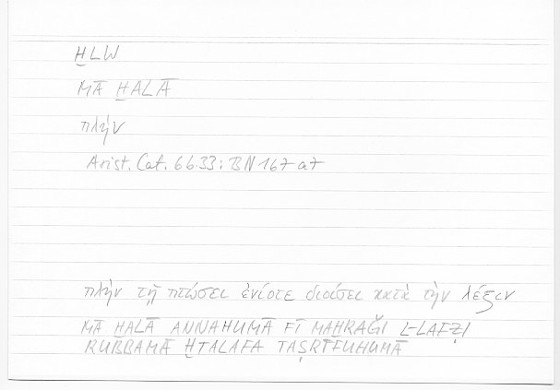 H̱LW
MĀ H̱ALĀ
πλήν
Arist. Cat. 6b33: BN 167 a7
πλὴν τῇ πτώσει ἐνίοτε διοίσει κατὰ τὴν λέξιν
MĀ H̱ALĀ ANNAHUMĀ FĪ MAH̱RAǦI L-LAFẒI
RUBBAMĀ H̱TALAFA TAṢRĪFUHUMĀ